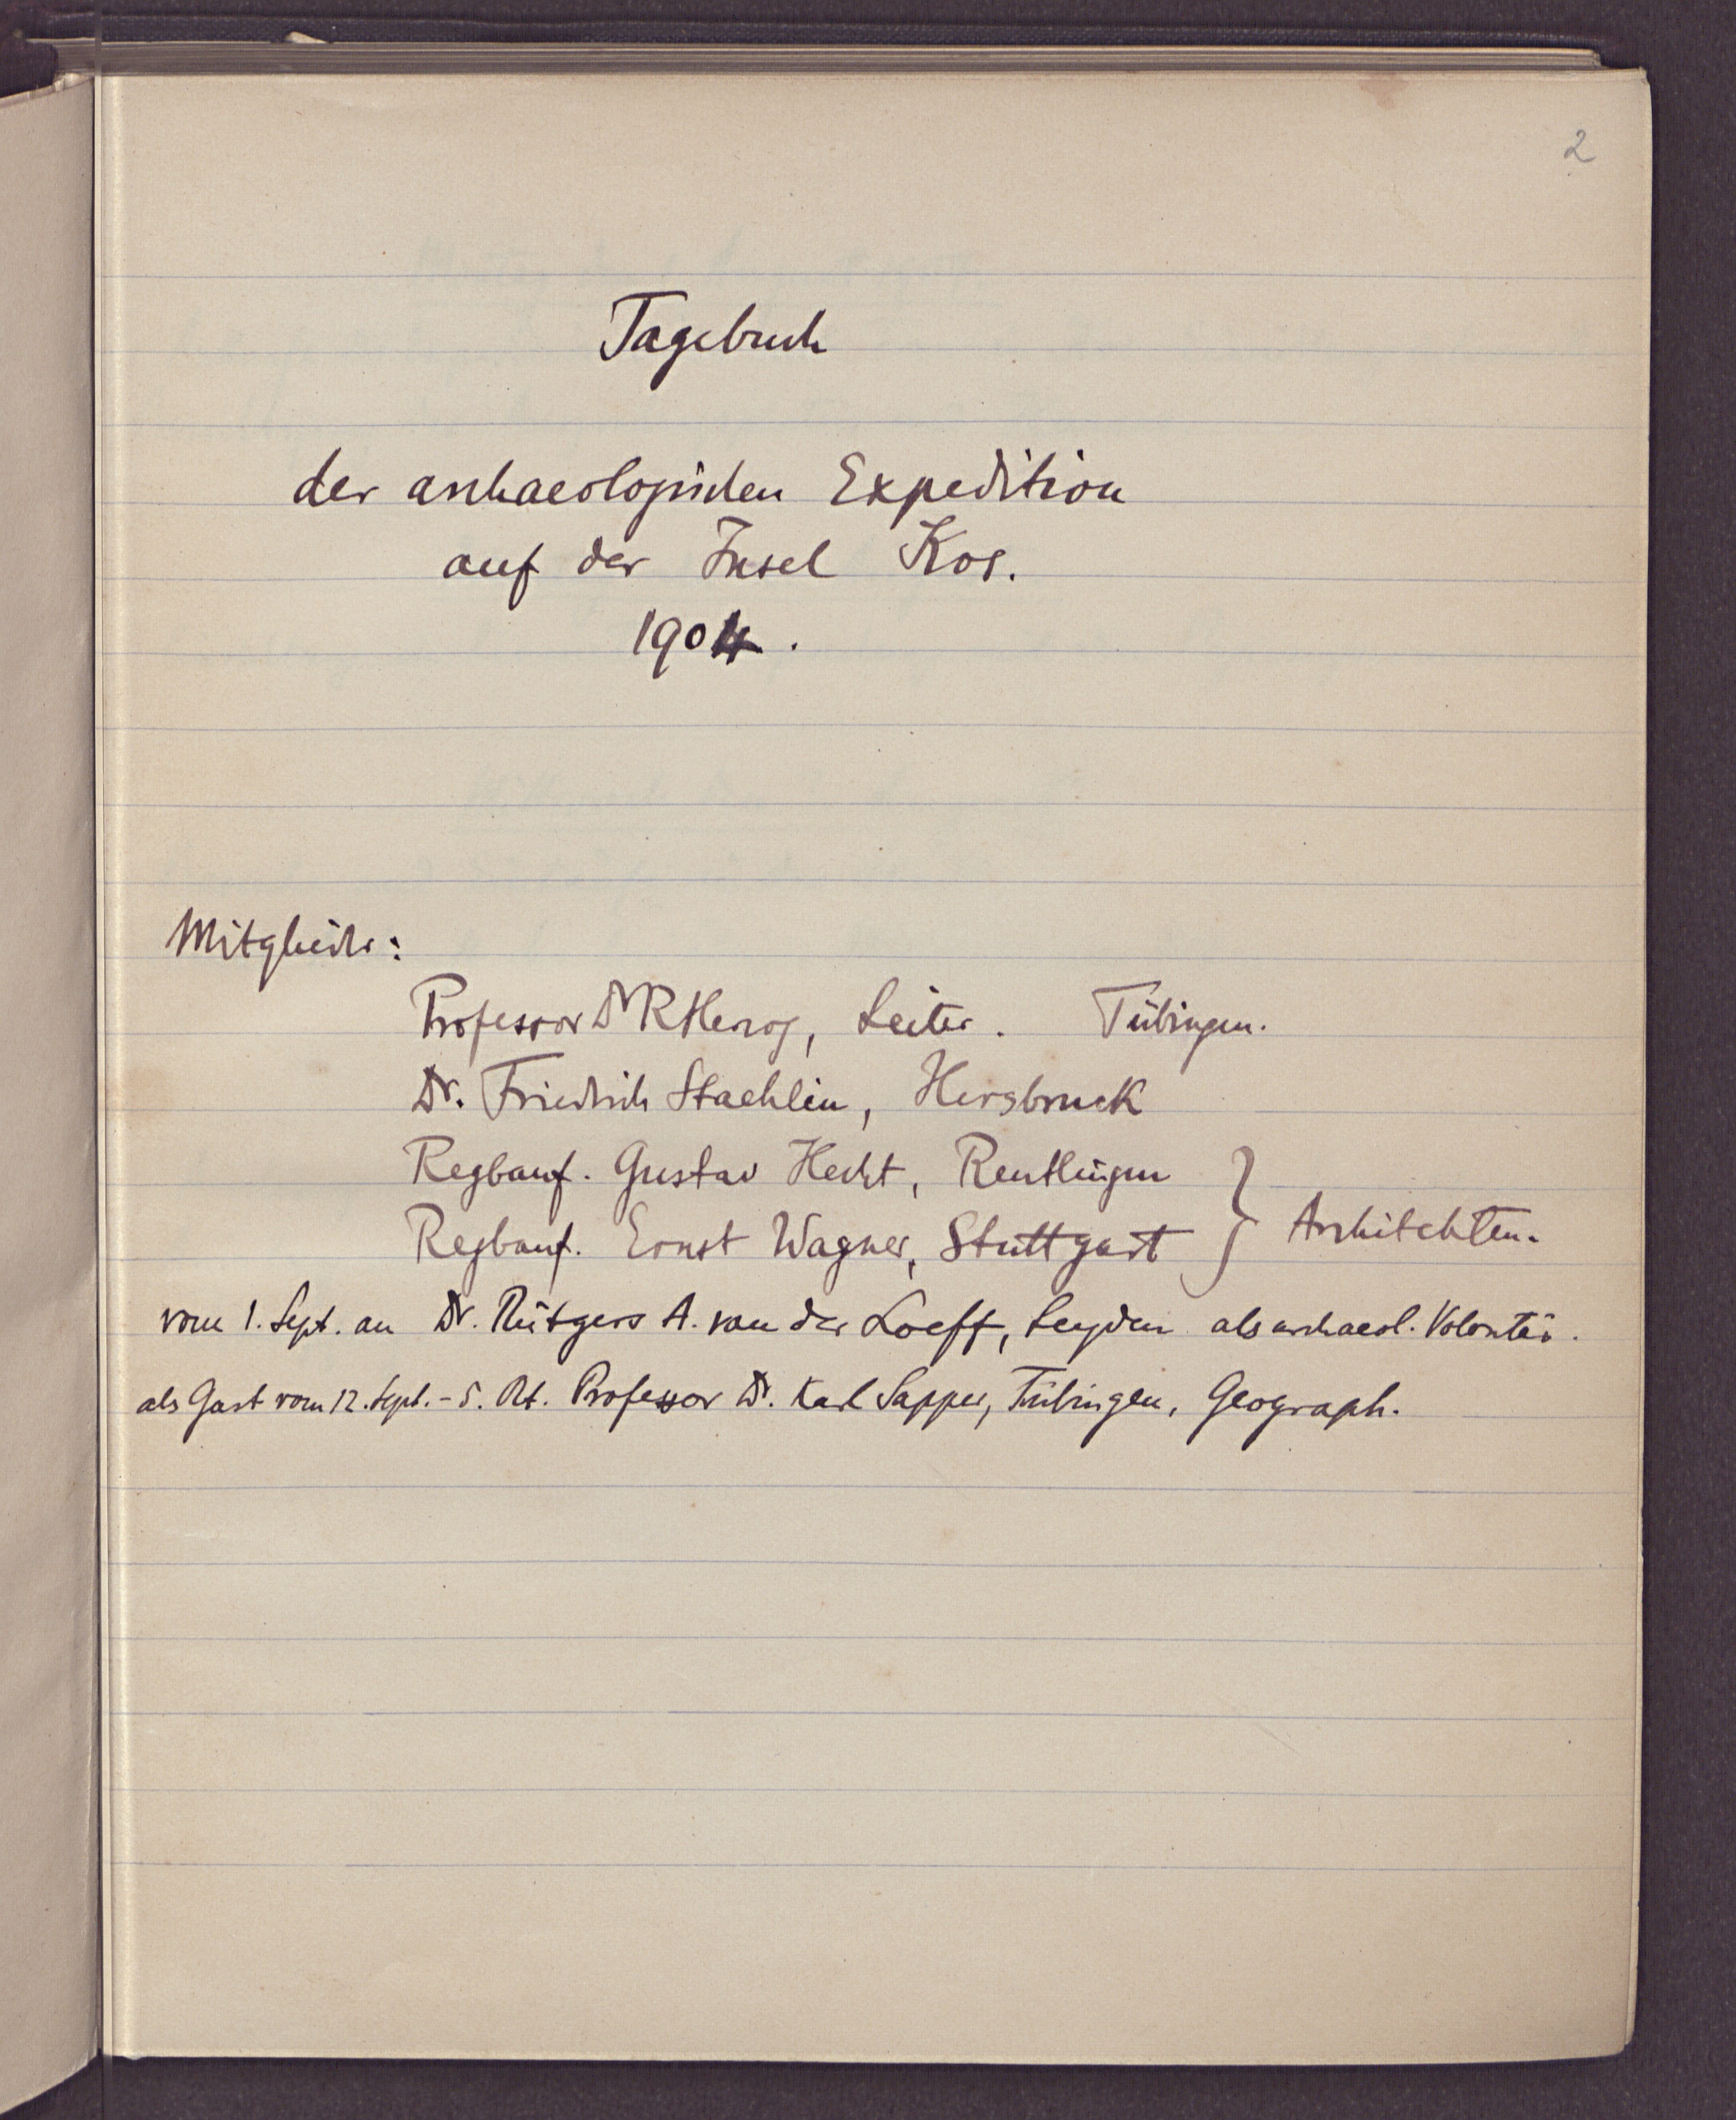 2
Tagebuch
der archaeologischen Expedition
auf der Insel Kos.
1904.
Mitglieder:
Professor Dr R Herzog, Leiter. Tübingen.
Dr. Friedrich Staehlin, Hersbruck
Regbauf. Gustav Hecht, Reutlingen
Regbauf. Ernst Wagner, Stuttgart } Architekten.
vom 1. Sept. an Dr. Rütgers A. van der Loeff, Leyden als archaeol. Volontär.
als Gast vom 12. Sept. - 5. Okt. Professor Dr. Karl Sapper, Tübingen, Geograph.